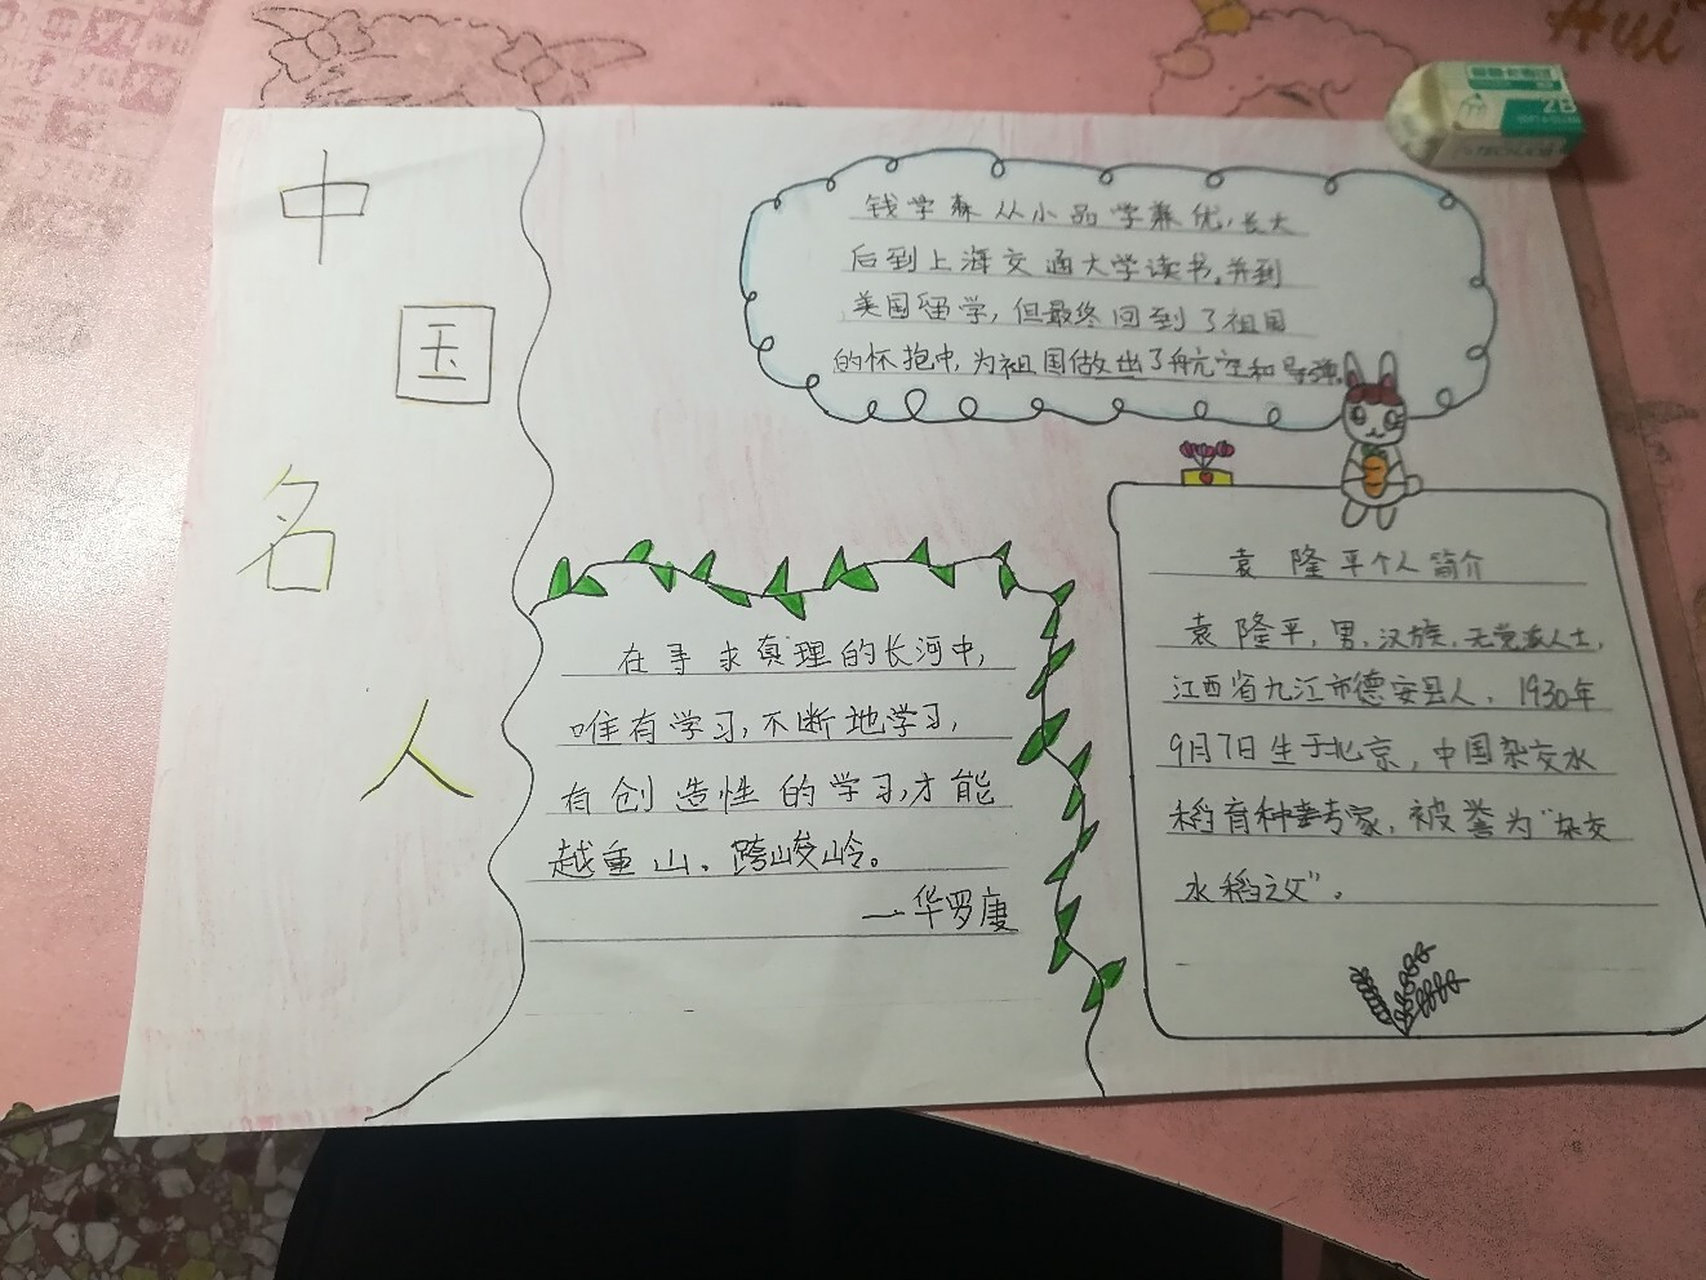 中
国
名
人
钱学森从小品学兼优，长大
后到上海交通大学读书。并到
美国留学，但最终回到了祖国
的怀抱中，为祖国做出了航空和导弹。
在寻求真理的长河中，
唯有学习，不断地学习，
有创造性的学习，才能
越重山、跨峻岭。
一华罗庚
袁隆平个人简介
袁隆平，男，汉族，无党派人士，
江西省九江市德安县人，1930年
9月7日生于北京，中国杂交水
稻育种专家，被誉为“杂交
水稻之父”。
Hui
2B